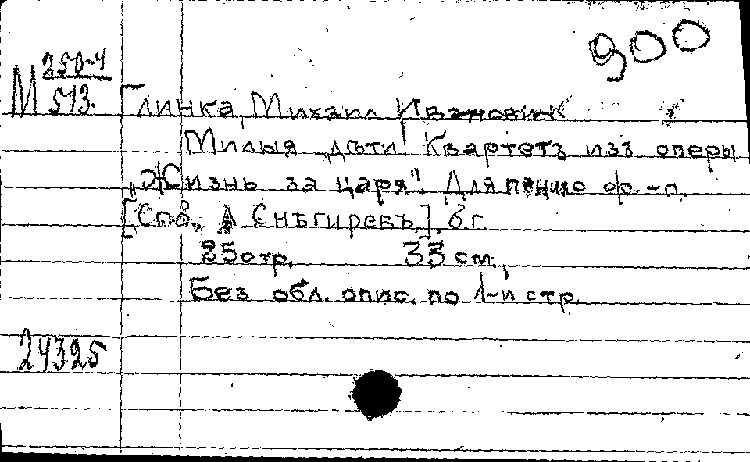 900
М 250-4
513.
Глинка, Михаил Иванович
Милыя дѣти! Квартетъ изъ оперы
"Жизнь за царя". Для пению ф.-п.
[Спб., А Снѣгиревъ]. б.г.
25 стр. 33 см.
Без обл. опис. по 1-й стр.
24325